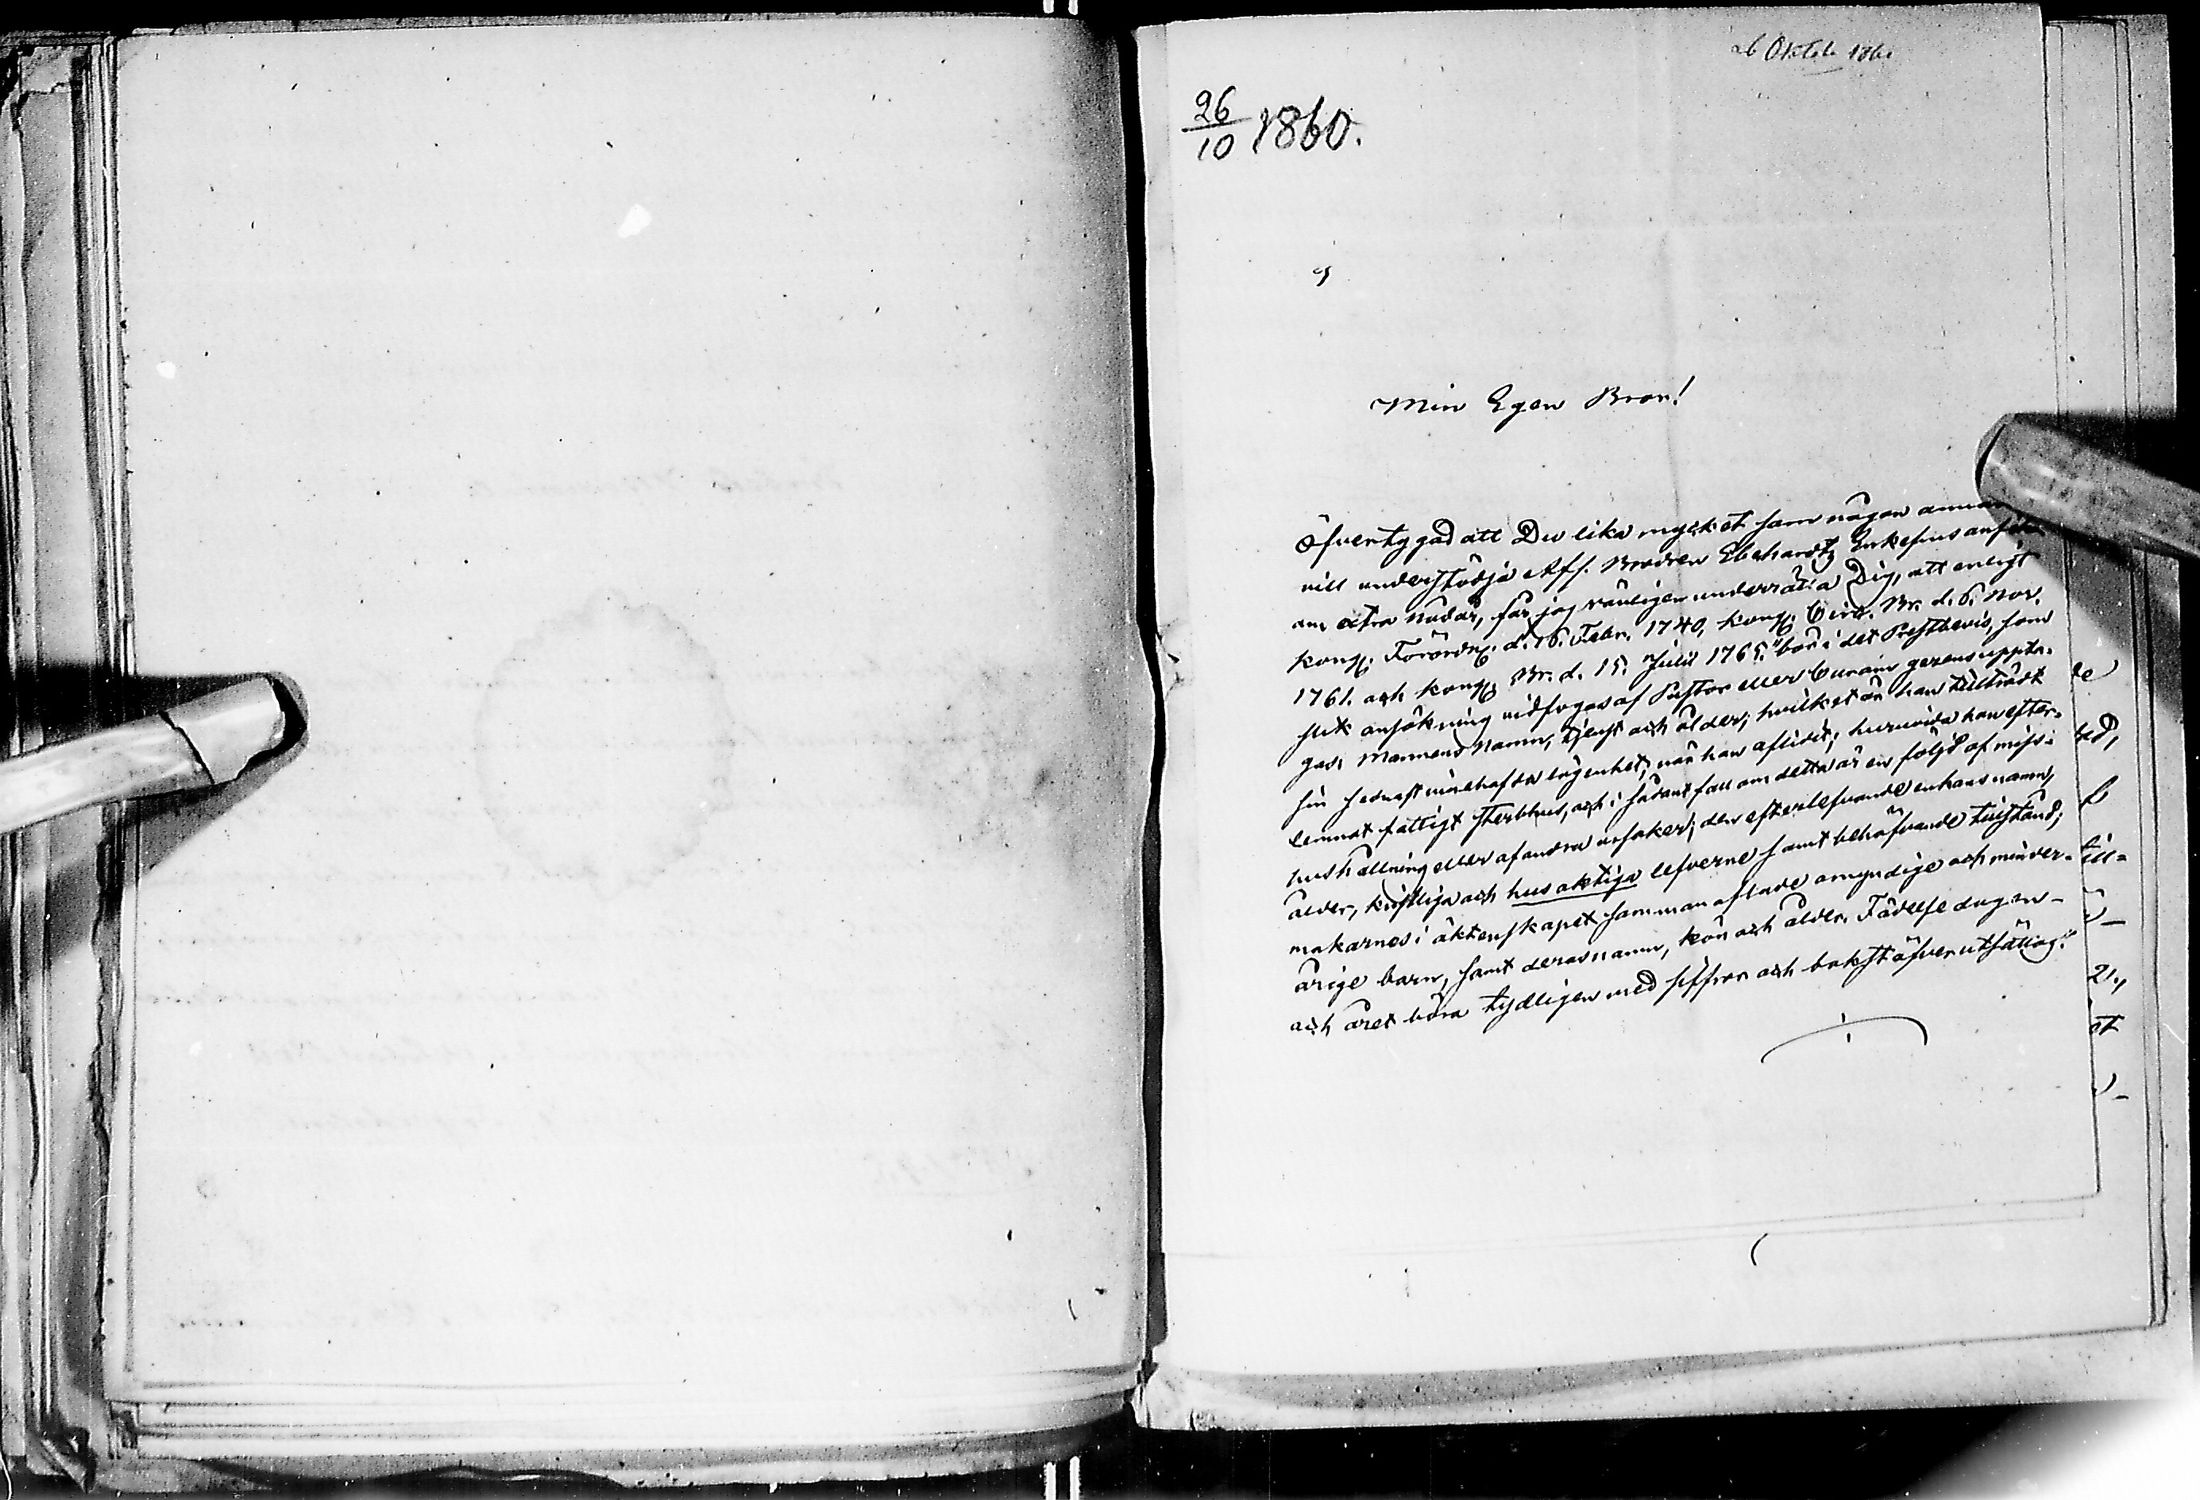 26 Oktob 1860
26/10 1860.
Min Egen Bror!
Öfvertygad att Du lika mycket som någon annan
vill understödja Afl. Brodren Eberhardtz Enkefrus ansök
om extra nådår, får jag vänligen underrätta Dig, att enligt
Kongl. Förordng. d. 16. Febr. 1740, Kongl. Circ. Br. d. 6. Nov.
1761. och Kongl. Br. d. 15. Julii 1765. "bör i det Prestbevis, som
slik ansökning vidfogas af Pastor eller Curam gerens uppta-
gas: Mannens namn, tjenst och ålder; hvilket år han tillträdt
sin sednast innehafda lägenhet; när han aflidit; huruvida han efter-
lemnat fattigt sterbhus, och i sådant fall om detta är en följd af miss-
hushållning eller af andra orsaker; den efterlefvande enkans namn,
ålder, kristliga och husaktiga lefverne samt behöfvande tillstånd;
makarnes i äktenskapet sammanaflade omyndige och minder-
årige barn, samt deras namn, kön och ålder. Födelsedagen
och året böra tydligen med siffror och bokstäfver utsättas."
de
ed,
till-
21.,
et